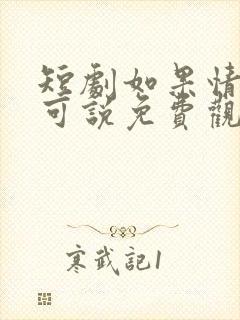 短劇如果情
可說免費觀
寒武記1